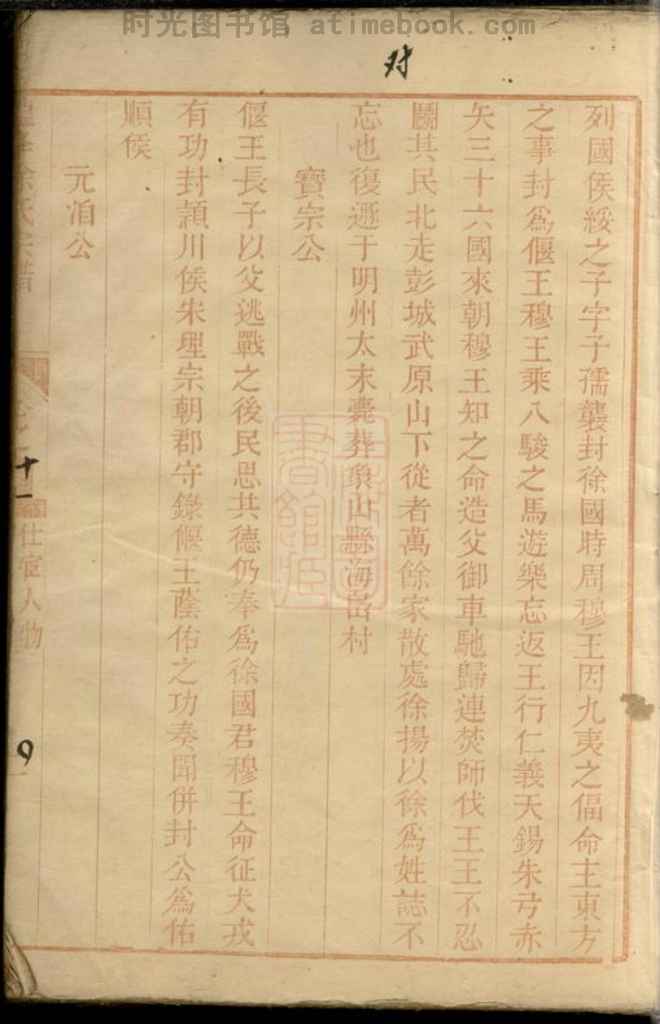 时光图书馆 atimebook.com
对
列國侯綏之子字子孺襲封徐國時周穆王因九夷之偪命主東方
之事封爲偃王穆王乘八駿之馬遊樂忘返王行仁義天錫朱弓赤
矢三十六國來朝穆王知之命造父御車馳歸連焚師伐王王不忍
鬭其民北走彭城武原山下從者萬餘家散處徐揚以徐爲姓誌不
忘也復遯于明州太末薨葬瓊山縣海嵒村
寶宗公
偃王長子以父逃戰之後民思其德仍奉爲徐國君穆王命征犬戎
有功封潁川侯朱理宗朝郡守錄偃王蔭佑之功奏聞併封公爲佑
順侯
元洎公
徐氏宗譜
十一
仕宦人物
9